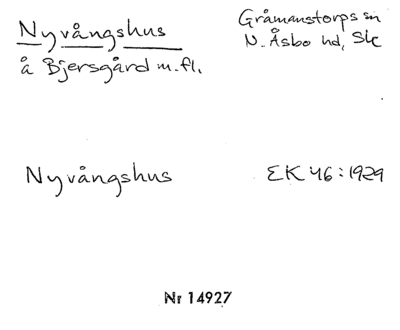 Nyvångshus
Gråmanstorps sn
N. Åsbo hd, Sk
å Bjersgård m.fl.
Nyvångshus
EK 46:1929
Nr 14927